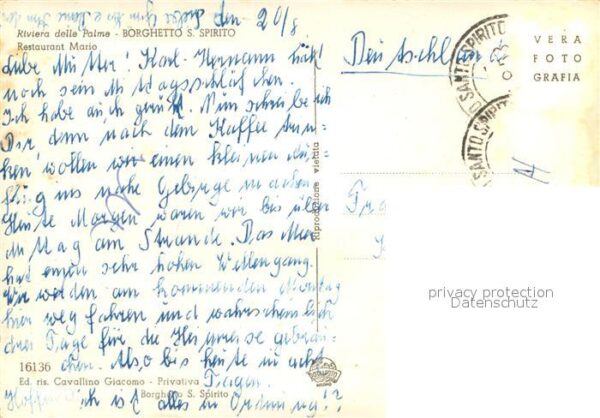 den 20/8
Riviera delle Palme - BORGHETTO S. SPIRITO
Restaurant Mario
Liebe Mutter! Karl-Hermann hält
noch sein Mittagsschläfchen.
Ich habe auch geruht. Nun schreibe ich
Dir denn nach dem Kaffee trin-
ken wollen wir einen kleinen Aus-
flug ins nahe Gebirge machen.
Heute Morgen waren wir bis über
Mittag am Strande. Das Meer
hat einen sehr hohen Wellengang.
Wir werden am kommenden Montag
hier weg fahren und wahrscheinlich
drei Tage für die Heimreise gebrau-
chen. Also bis heute in acht
Tagen.
16136
Ed. ris. Cavallino Giacomo - Privativa
Borghetto S. Spirito
Hoffentlich ist alles in Ordnung!?
Riproduzione vietata
Deutschland
SANTO SPIRITO
SANTO SPIRITO
VERA
FOTO
GRAFIA
Fra
privacy protection
Datenschutz